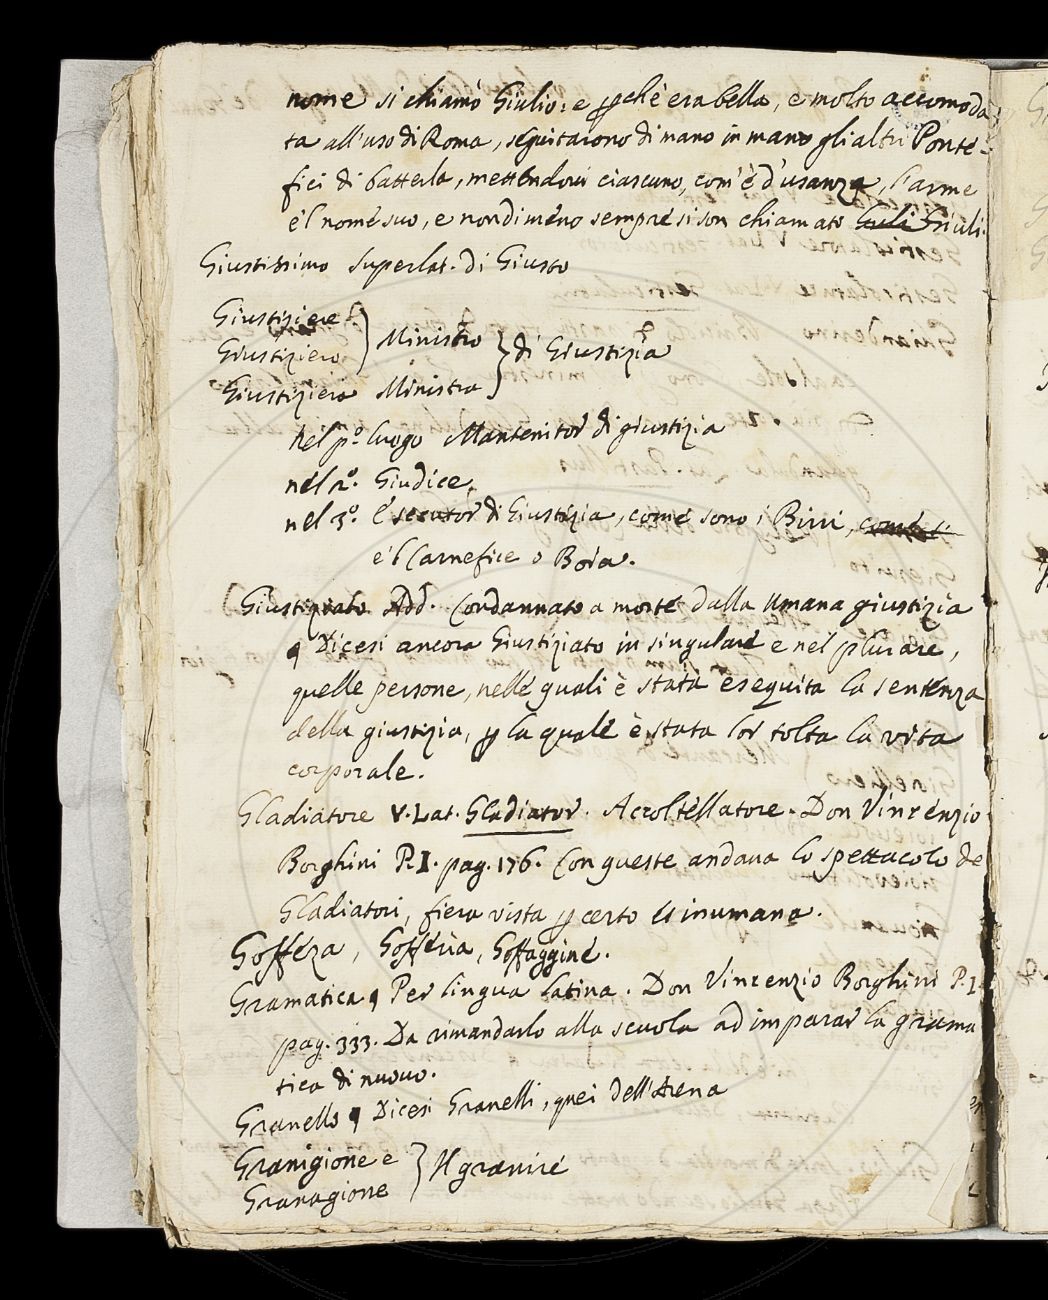 nome si chiamò Giulio: e pchè era bella, e molto accomoda
ta all'uso di Roma, seguitarono di mano in mano gli altri Ponte-
fici di batterla, mettendovi ciascuno, com'è d'usanza, l'arme
e'l nome suo, e nondimeno sempre si son chiamati Giuli Giuli.
Giustissimo superlat. di Giusto
Giustiziere
Giustiziero } Ministro } di Giustizia
Giustiziera Ministra
nel po. luogo Mantenitor di giustizia
nel 2o. Giudice,
nel 3o. Esecutor di Giustizia, come sono i Birri,
e'l Carnefice o Boia.
Giustiziato Add. Condannato a morte dalla umana giustizia
¶ Dicesi ancora Giustiziato in singulare e nel plurare,
quelle persone, nelle quali è stata eseguita la sentenza
della giustizia, p la quale è stata lor tolta la vita
corporale.
Gladiatore V. Lat. Gladiator. Accoltellatore. Don Vincenzio
Borghini P. I. pag. 176. Con queste andava lo spettacolo de
Gladiatori, fiera vista p certo et inumana.
Goffeza, Gofferia, Goffaggine.
Gramatica ¶ Per lingua latina. Don Vincenzio Borghini P. I.
pag. 333. Da rimandarlo alla scuola ad imparar la grama
tica di nuovo.
Granello ¶ Dicesi Granelli, quei dell'Arena
Granigione e
Granagione } Il granire